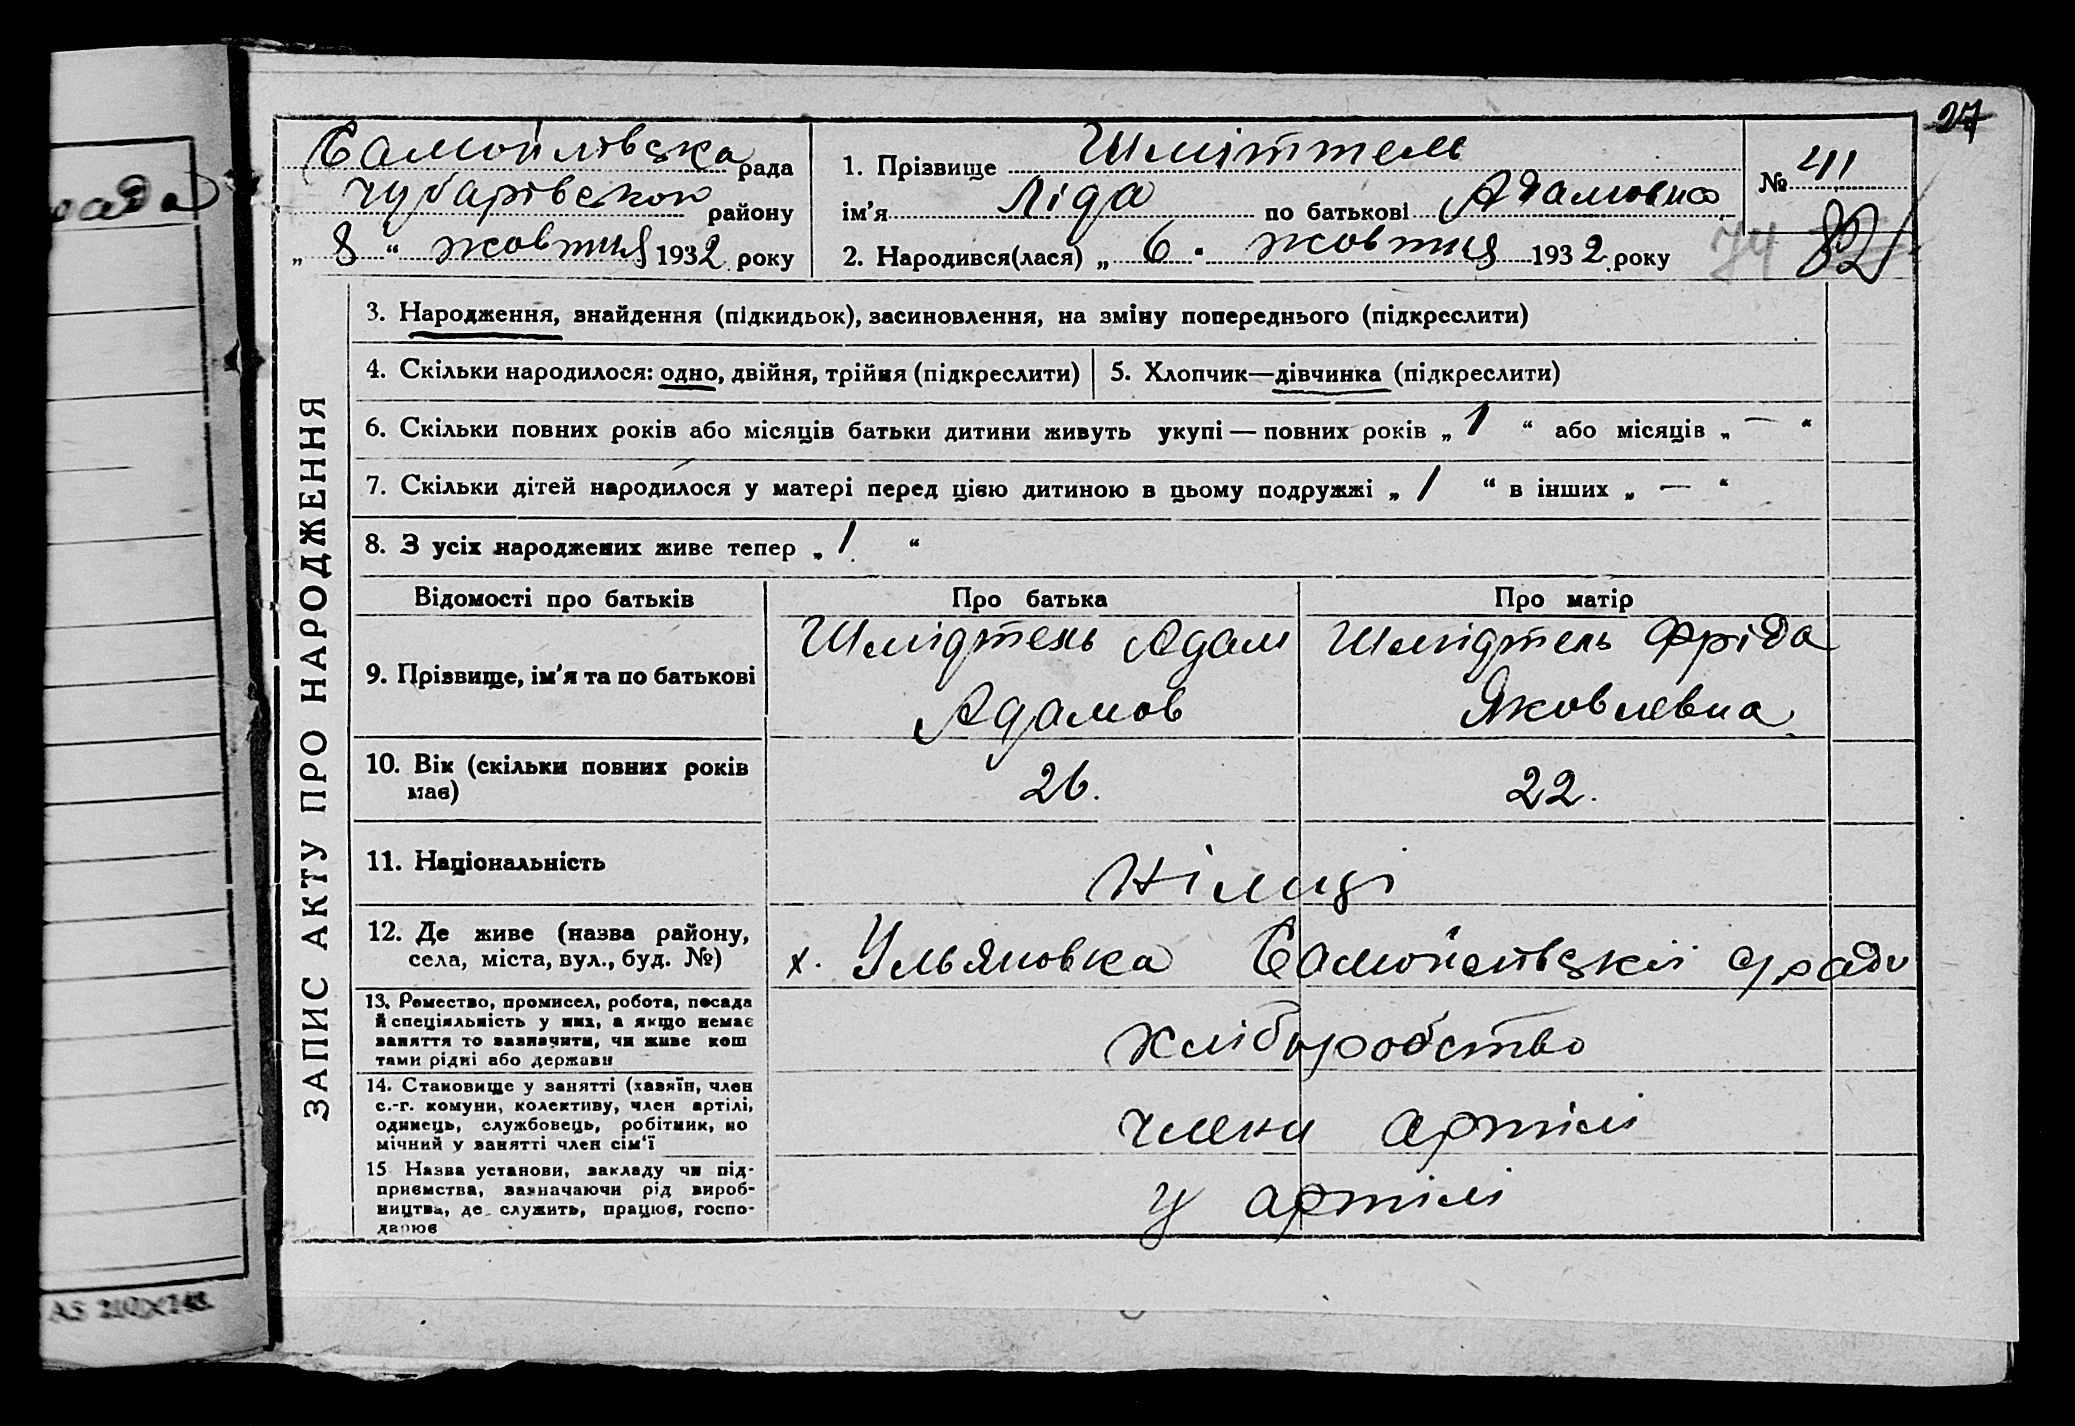 27
Самойлівська рада
Чубарівського району
„ 8 “ жовтня 1932 року
1. Прізвище Шміттель
ім’я Ліда по батькові Адамовна
2. Народився(лася) „ 6 “ жовтня 1932 року
№ 411
74 82
ЗАПИС АКТУ ПРО НАРОДЖЕННЯ
3. Народження, знайдення (підкидьок), засиновлення, на зміну попереднього (підкреслити)
4. Скільки народилося: одно, двійня, трійня (підкреслити)
5. Хлопчик—дівчинка (підкреслити)
6. Скільки повних років або місяців батьки дитини живуть укупі — повних років „ 1 “ або місяців „ — “
7. Скільки дітей народилося у матері перед цією дитиною в цьому подружжі „ 1 “ в інших „ — “
8. З усіх народжених живе тепер „ 1 “
Відомості про батьків
Про батька
Про матір
9. Прізвище, ім’я та по батькові
Шмідтель Адам
Адамов
Шмідтель Фріда
Яковлевна
10. Вік (скільки повних років
має)
26.
22.
11. Національність
Німці
12. Де живе (назва району,
села, міста, вул., буд. №)
х. Ульяновка Самойлівській с/раді
13. Ремество, промисел, робота, посада
й спеціяльність у них, а якщо немає
заняття то зазначити, чи живе кош
тами рідні або держави
Хліборобство
14. Становище у занятті (хазяїн, член
с.-г. комуни, колективу, член артілі,
одинець, службовець, робітник, по
мічний у занятті член сім‘ї
члени артілі
15 Назва установи, закладу чи під-
приємства, зазначаючи рід вироб-
ництва, де служить, працює, госпо-
дарює
у артілі
рада
А5 210X148.